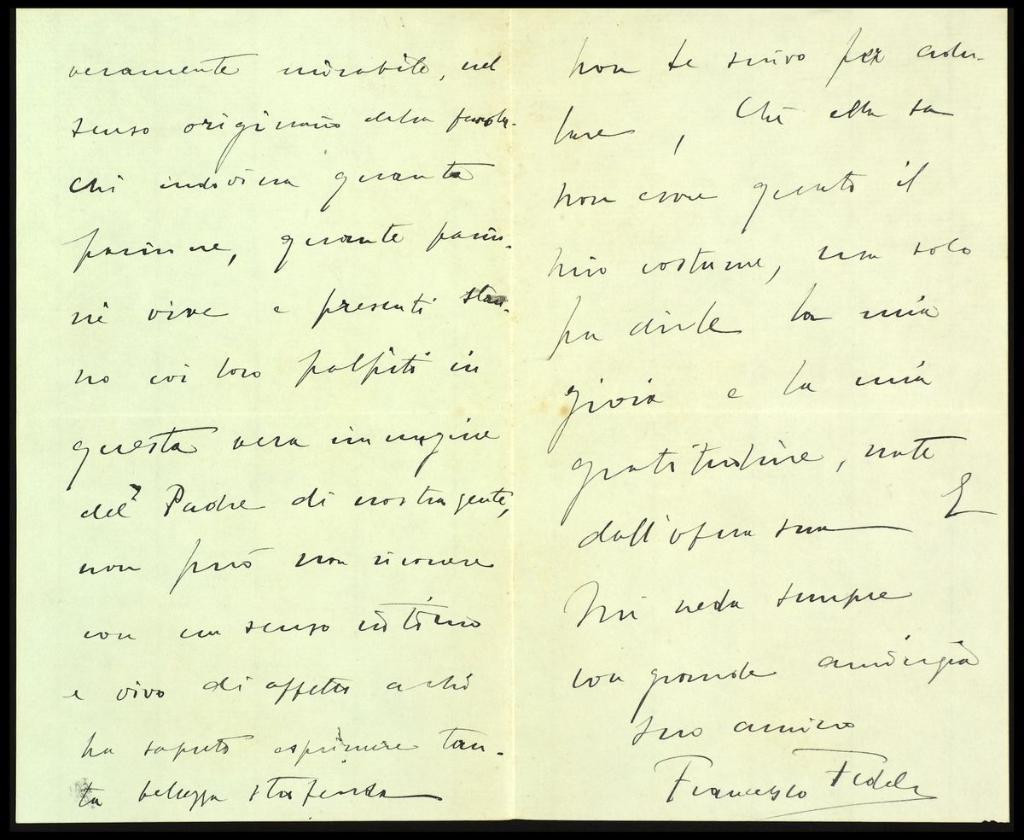 veramente mirabile, nel
senso originario della parola.
Chi indovina quanta
passione, quante passio-
ni vive e presenti stan-
no coi loro palpiti in
questa vera immagine
del Padre di nostra gente,
non può non ricorrere
con un senso intimo
e vivo di affetto a chi
ha saputo esprimere tan-
ta bellezza stupenda
Non le scrivo per adu-
lare, Chè ella sa
non essere questo il
mio costume, ma solo
per dirle la mia
gioia e la mia
gratitudine, nate
dall'opera sua E
mi creda sempre
con grande amicizia
suo amico
Francesco Fedele